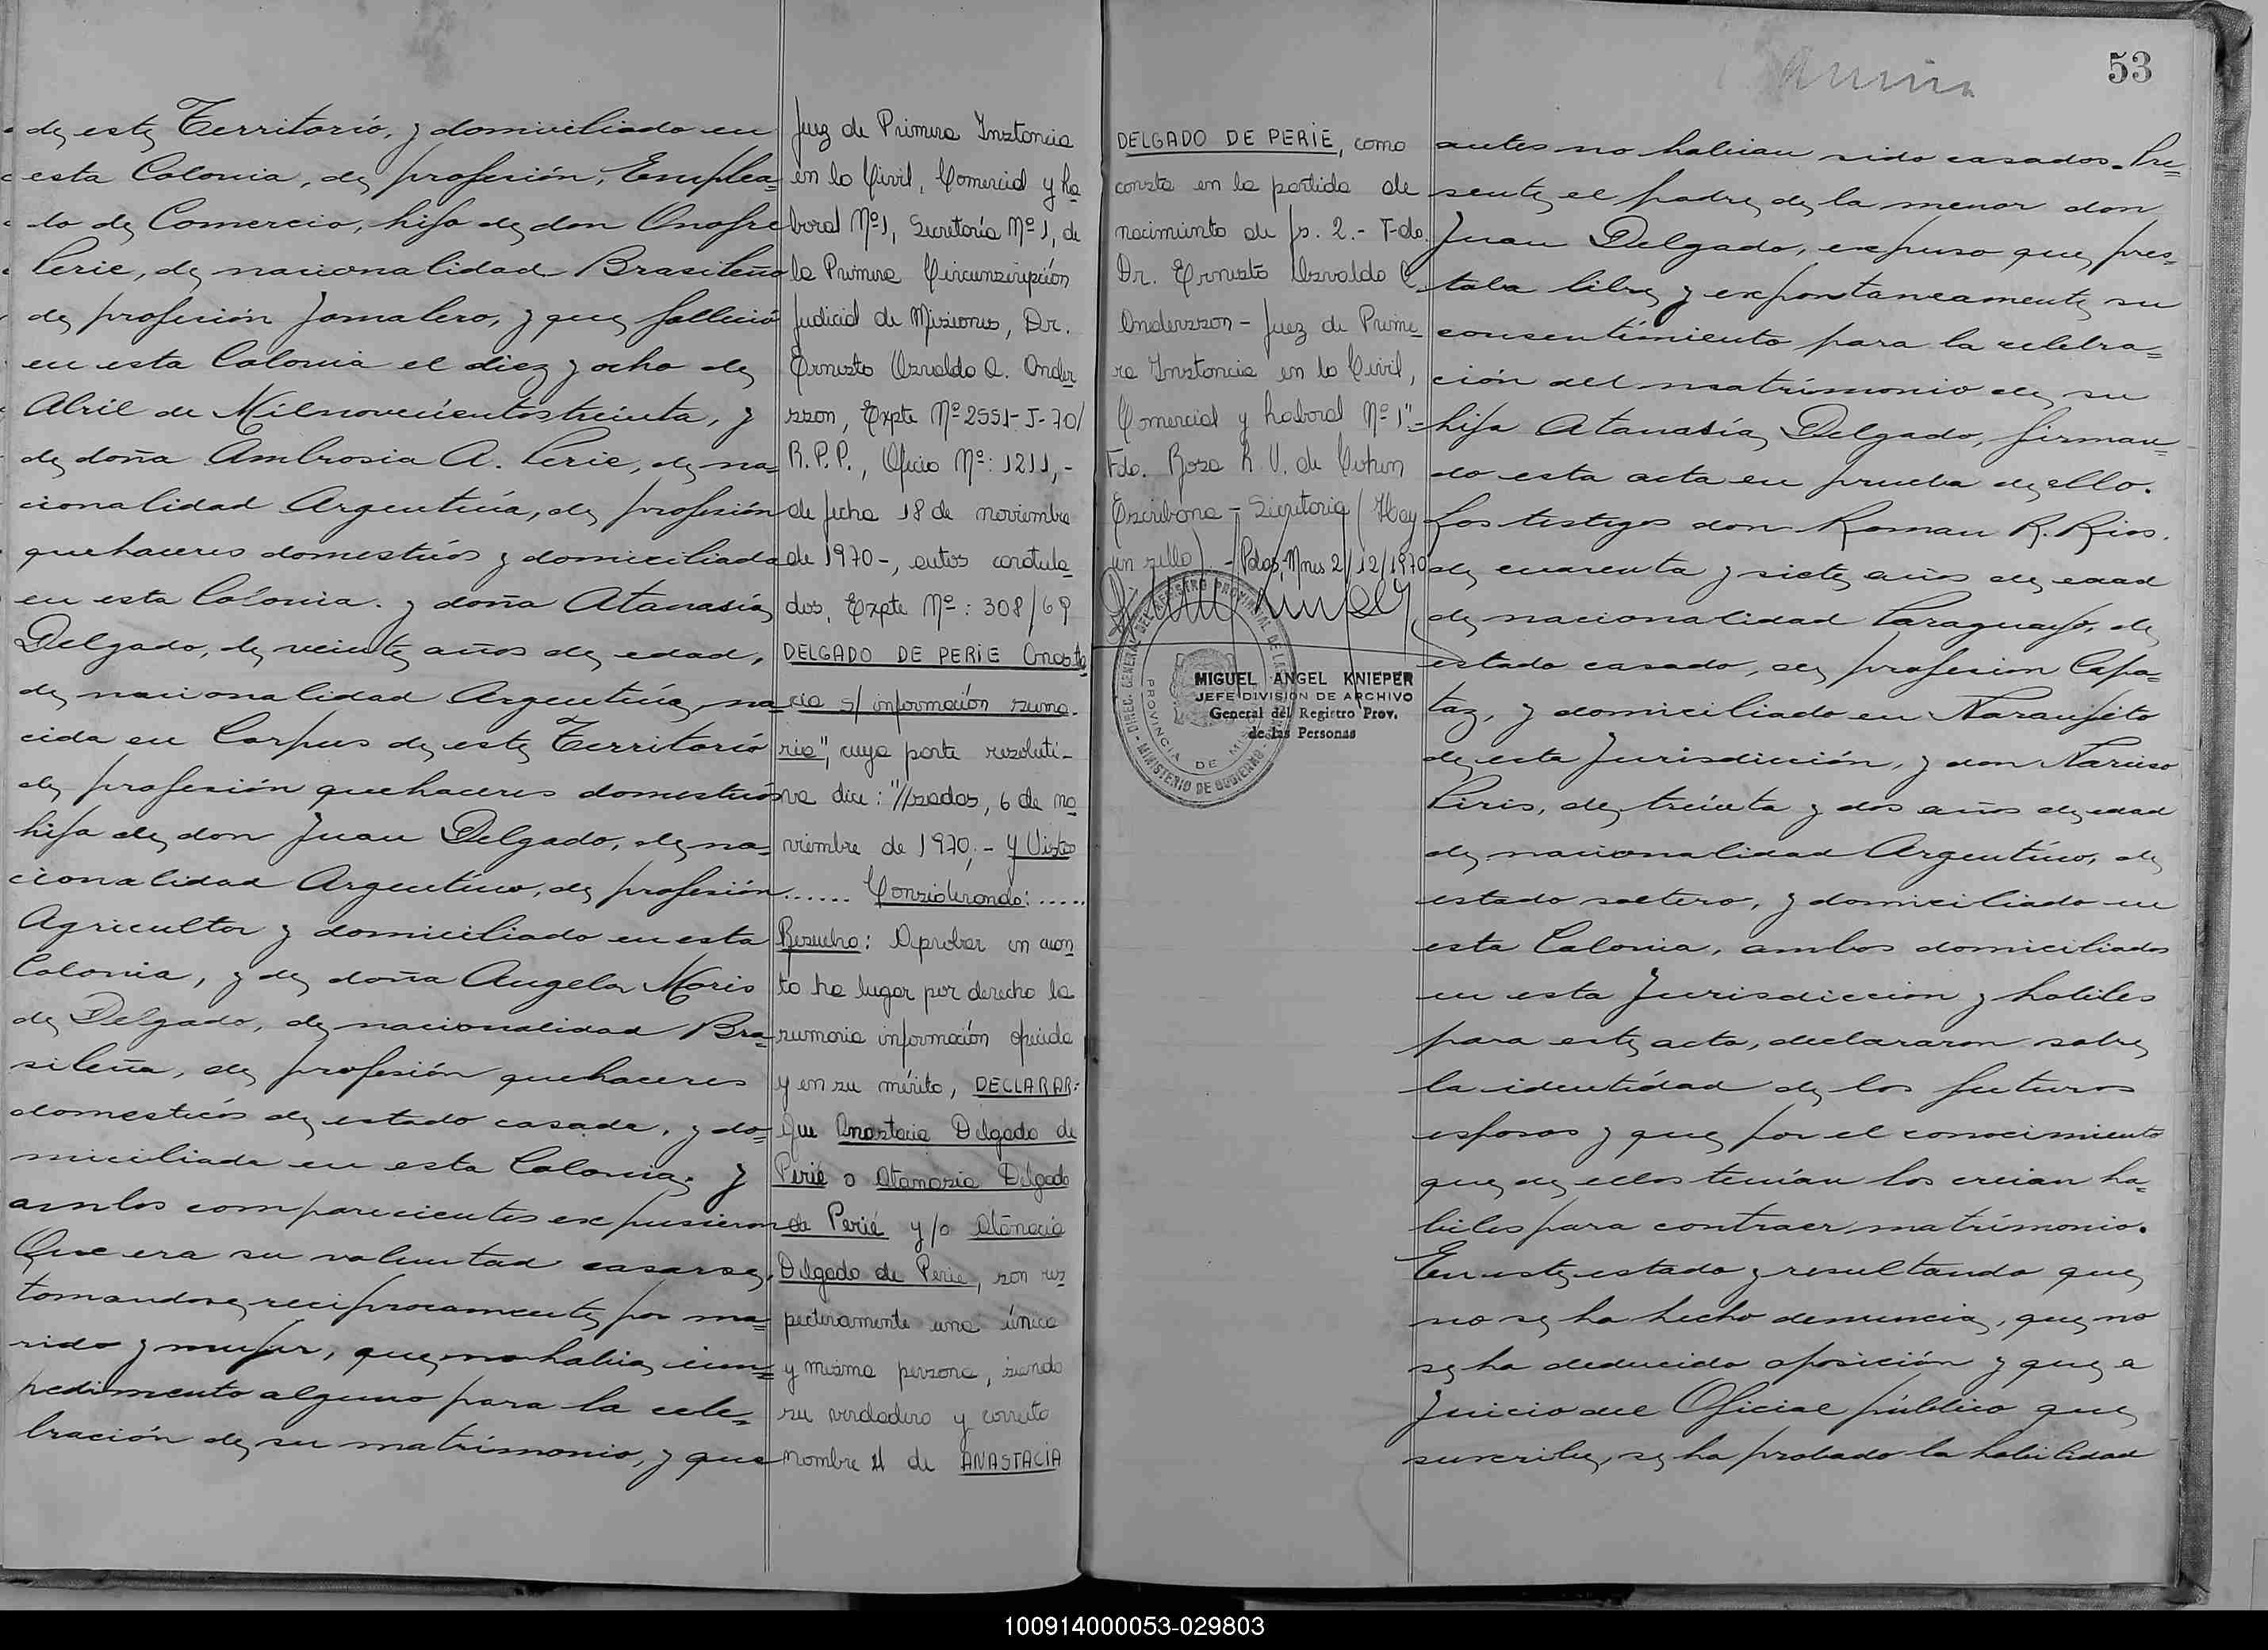 de este Territorio, y domiciliado en
esta Colonia, de profesión, Emplea=
do de Comercio, hijo de don Onofre
Perie, de nacionalidad Brasileño
de profesión Jornalero, y que falleció
en esta Colonia el diez y ocho de
Abril de Milnovecientostreinta, y
de doña Ambrosia A. Perie, de na=
cionalidad Argentina, de profesión
quehaceres domesticos y domiciliada
en esta Colonia. y doña Atanasia
Delgado, de veinte años de edad,
de nacionalidad Argentina, na=
cida en Corpus de este Territorio
de profesión quehaceres domesticos
hija de don Juan Delgado, de na=
cionalidad Argentino, de profesión
Agricultor y domiciliado en esta
Colonia, y de doña Angela Moris
de Delgado, de nacionalidad Bra=
sileña, de profesión quehaceres
domesticos de estado casada, y do=
miciliada en esta Colonia. y
ambos comparecientes expusieron
Que era su voluntad casarse,
tomandose reciprocamente por ma=
rido y mujer, que no habia im=
pedimento alguno para la cele=
bración de su matrimonio, y que
Juez de Primera Instancia
en lo Civil, Comercial y La
boral Nº1, Secretaría Nº 1, de
la Primera Circunscripción
Judicial de Misiones, Dr.
Ernesto Osvaldo A. Ander
sson, Expte Nº 2551-J-70/
R.P.P., Oficio Nº: 1211,-
de fecha 18 de noviembre
de 1970-, autos caratula
dos, Expte Nº: 308/69
DELGADO DE PERIE Anasta
cia s/ información suma.
ria", cuya parte resoluti-
va dice: "//sadas, 6 de no
viembre de 1970;- Y Vistos
...... Considerando: .....
Resuelvo: Aprobar en cuan
to ha lugar por derecho la
sumaria información ofrecida
y en su mérito, DECLARAR:
Que Anastacia Delgado de
Perié o Atanasia Delgado
de Perié y/o Atánacia
Delgado de Perie, son res
pectivamente una única
y misma persona, siendo
su verdadero y correcto
nombre el de ANASTACIA
DELGADO DE PERIE, como
consta en la partida de
nacimiento de fs. 2.- Fdo.
Dr. Ernesto Osvaldo C.
Andersson - Juez de Prime
ra Instancia en lo Civil,
Comercial y Laboral Nº 1"-
Fdo. Rosa R. V. de Cohen
Escribana - Secretaria / Hay
un sello - Pdas, Mnes 2/12/1970
MIGUEL ANGEL KNIEPER
JEFE DIVISION DE ARCHIVO
General del Registro Prov.
de las Personas
DIREC. GENERAL DEL REGISTRO PROVINCIAL DE LAS
PROVINCIA DE MIS
MINISTERIO DE GOBIERNO
53
antes no habian sido casados. Pre=
sente el padre de la menor don
Juan Delgado, expuso que pres=
taba libre y expontaneamente su
consentimiento para la celebra=
ción del matrimonio de su
hija Atanasia Delgado, firman=
do esta acta en prueba de ello.
Los testigos don Roman R. Rios.
de cuarenta y siete años de edad
de nacionalidad Paraguayo, de
estado casado, de profesion Capa=
taz, y domiciliado en Naranjito
de esta Jurisdicción, y don Narciso
Piris, de treinta y dos años de edad
de nacionalidad Argentino, de
estado soltero, y domiciliado en
esta Colonia, ambos domiciliados
en esta Jurisdiccion y habiles
para este acto, declararon sobre
la identidad de los futuros
esposos y que por el conocimiento
que de ellos tenían los creian ha=
biles para contraer matrimonio.
En este estado y resultando que
no se ha hecho denuncia, que no
se ha deducido oposición y que a
Juicio del Oficial público que
suscribe, se ha probado la habilidad
100914000053-029803